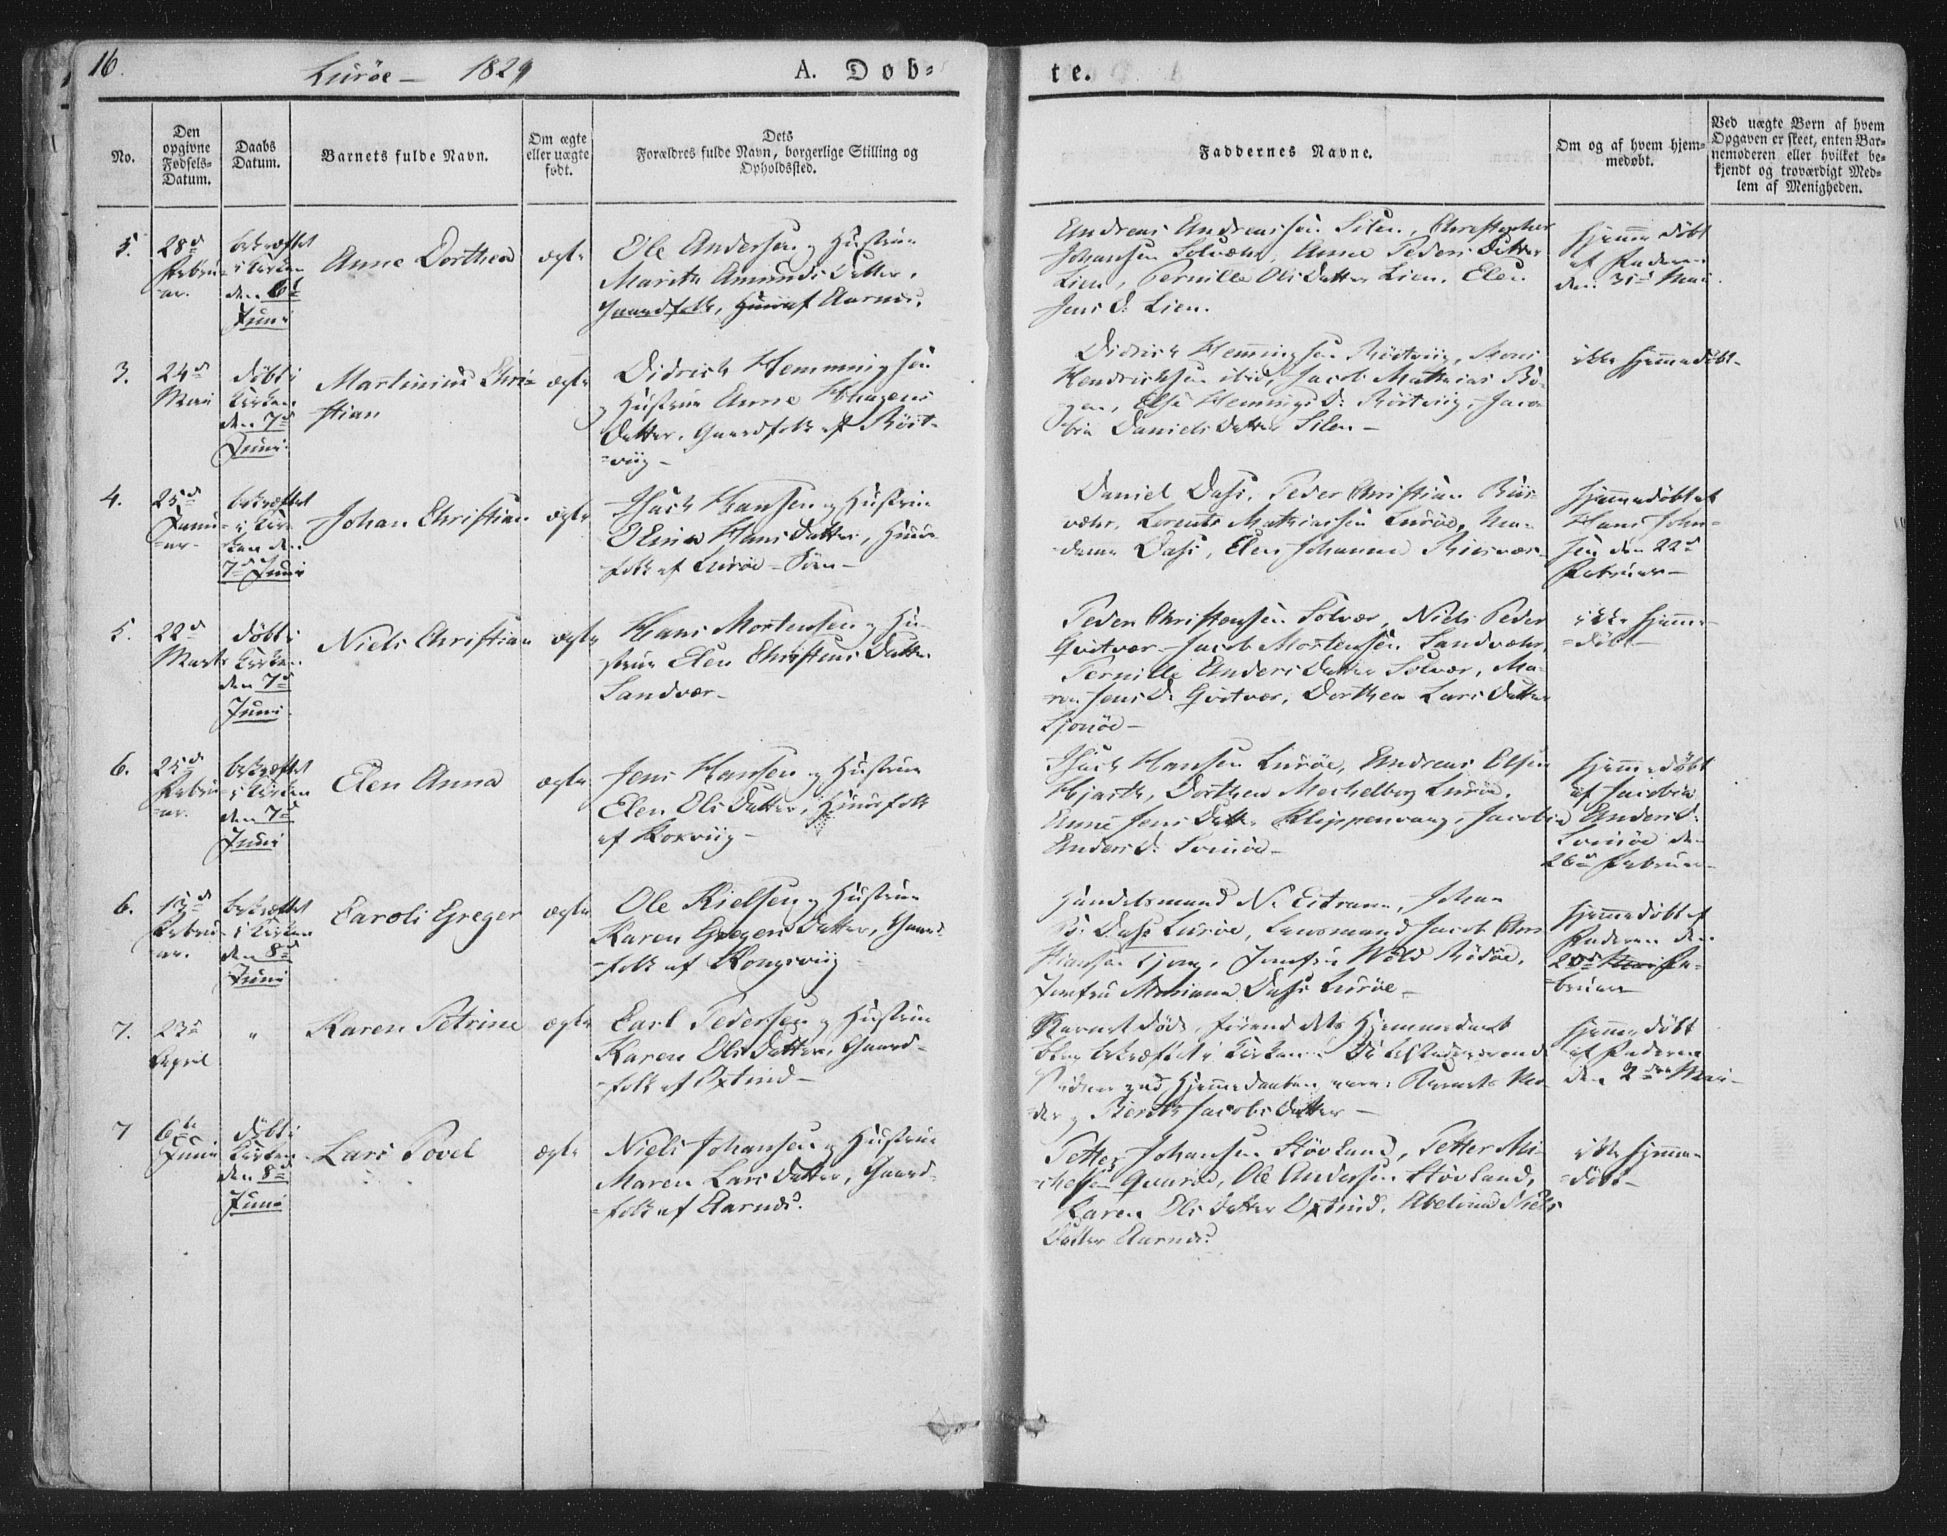 16.
Lurøe – 1829
A. Døb=
te.
No.
Den
opgivne
Fødsels=
Datum.
Daabs
Datum.
Barnets fulde Navn.
Om ægte
eller uægte
født.
Dets
Forældres fulde Navn, borgerlige Stilling og
Opholdssted.
Faddernes Navne.
Om og af hvem hjem=
medøbt.
Ved uægte Børn af hvem
Opgaven er skeet, enten Bar=
nemoderen eller hvilket be=
kjendt og troværdigt Med=
lem af Menigheden.
5.
28d
Febru=
ar.
bekræftet
i Kirken
den 6d
Juni
Anne Dorthea
ægte
Ole Andersen og Hustrue
Marith Amunds Datter,
Gaardfolk, af Aarnes.
Andreas Andreassen Silen, Christopher
Johansen Solvær, Anne Peders Datter
Lien, Pernille Ols Datter Lien, Elen
Jens D. Lien.
hjemme døbt
af Faderen
den 31d Mai.
3.
24d
Mai
døbt i
Kirken
den 7d
Juni
Martinius Chri=
stian
ægte
Didrich Hemmingsen
og Hustrue Anne Hagens
Datter, Gaardfolk af Röit=
viig –
Didrich Hemmingsen Röitviig,
Hendrichsen ibid, Jacob Mathias Bö=
gen, Else Hemmings D. Röitviig, Jaco=
bia Daniels Datter Silen –
ikke hjemmedøbt –
4.
25d
Janu=
ar.
bekræftet
i Kir=
ken den
7d Juni
Johan Christian
ægte
Isach Hansen og Hustrue
Olina Hans Datter, Huus=
folk af Lurøe
Daniel Dass, Peder Christian Riis=
vær, Lorents Mathiassen Lurøe, Ma=
dame Dass, Elen Johanna Riisvær –
hjemmedøbt af
Hans John=
sen den 22d
Februar –
5.
22d
Marts
døbt i
Kirken
den 7d
Juni.
Niels Christian
ægte
Hans Mortensen og Hu=
strue Elen Christens Datter
Sandvær –
Peder Christensen Solvær, Niels Peder
Qvitvær – Jacob Mortensen Sandvær,
Pernille Anders Datter Solvær, Ma=
ren Jens D. Qvitvær, Dorthea Lars Datter
Sjonøe –
ikke hjemme=
=døbt –
6.
25d
Febru=
ar.
bekræftet
i Kirken
den 7d
Juni
Elen Anna
ægte
Jens Hansen og Hustrue
Elen Ols Datter, Huusfolk
af Korviig –
Isach Hansen Lurøe, Andreas Olsen
Hjarth, Dorthea Mechelborg Lurøe,
Anne Jens Datter Klippenvaag, Jacobia
Anders D. Svinöe –
hjemmedøbt
af Jacobia
Anders D.
Svinöe den
26d Februar –
6.
Febru=
ar.
bekræftet
i Kirken
den 8d
Juni
Caroli Greger
ægte
Ole Kielsen og Hustrue
Karen Gregers Datter, Gaard=
=folk af Kongsviig –
Handelsmand N. Eitrann, Johan
Dass Lurøe, Lensmand Jacob Chri=
stiansen Tjong, Jomfru Wold Rödöe,
Jomfru Mariana Dass Lurøe –
hjemmedøbt af
Faderen den
Fe=
=bruar
7.
23d
April
„
Karen Petrine
ægte
Carl Pedersen og Hustrue
Karen Ols Datter, Gaard=
=folk af Oxtind –
Barnet døde, förend dets Hjemmedaab
blev bekræftet i Kirken.
Vidner ved Hjemmedaaben vare: Barnets Mo=
der og Berith Jacobs Datter –
hjemme døbt
af Faderen
den 2den Mai –
7
6te
Juni
døbt i
Kirken
den 8d
Juni
Lars Povel
ægte
Niels Johansen og Hustrue
Maren Lars Datter, Gaard=
=folk af Aarnes.
Petter Johansen Stövland, Petter Mi=
chelsen Ole Andersen Stövland,
Karen Ols Datter Oxtind, Abelvine Niels
Datter Aarnes.
ikke hjemme=
=døbt –